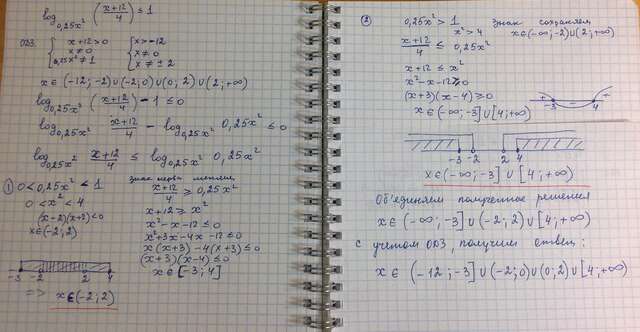 log₀,₂₅ₓ² (x+12/4) ≤ 1
ОДЗ. { x+12>0 { x>-12
x≠0 x≠0
0,25x²≠1 x≠±2
x∈(-12;-2)∪(-2;0)∪(0,2)∪(2,+∞)
log₀,₂₅ₓ² (x+12/4) - 1 ≤ 0
log₀,₂₅ₓ² x+12/4 - log₀,₂₅ₓ² 0,25x² ≤ 0
log₀,₂₅ₓ² x+12/4 ≤ log₀,₂₅ₓ² 0,25x²
① 0<0,25x² ≤ 1
0 < x² < 4
(x-2)(x+2)<0
x∈(-2;2)
знак нер-ва меняем
x+12/4 ≥ 0,25x²
x+12 ≥ x²
x²-x-12 ≤ 0
x²+3x-4x-12 ≤ 0
x(x+3)-4(x+3) ≤ 0
(x+3)(x-4) ≤ 0
x∈[-3;4]
-3 2 2 4
=> x∈(-2;2)
② 0,25x² > 1 Знак сохраняем
x² > 4 x∈(-∞;-2)∪(2;+∞)
x+12/4 ≤ 0,25x²
x+12 ≤ x²
x²-x-12 ≥ 0
(x+3)(x-4) ≥ 0
-3 4
x∈(-∞;-3]∪[4;+∞)
-3 -2 2 4
x∈(-∞;-3]∪[4;+∞)
Объединяем полученное решения
x∈(-∞;-3]∪(-2;2)∪[4;+∞)
с учетом ОДЗ, получим ответ:
x∈(-12;-3]∪(-2;0)∪(0,2)∪[4;+∞)